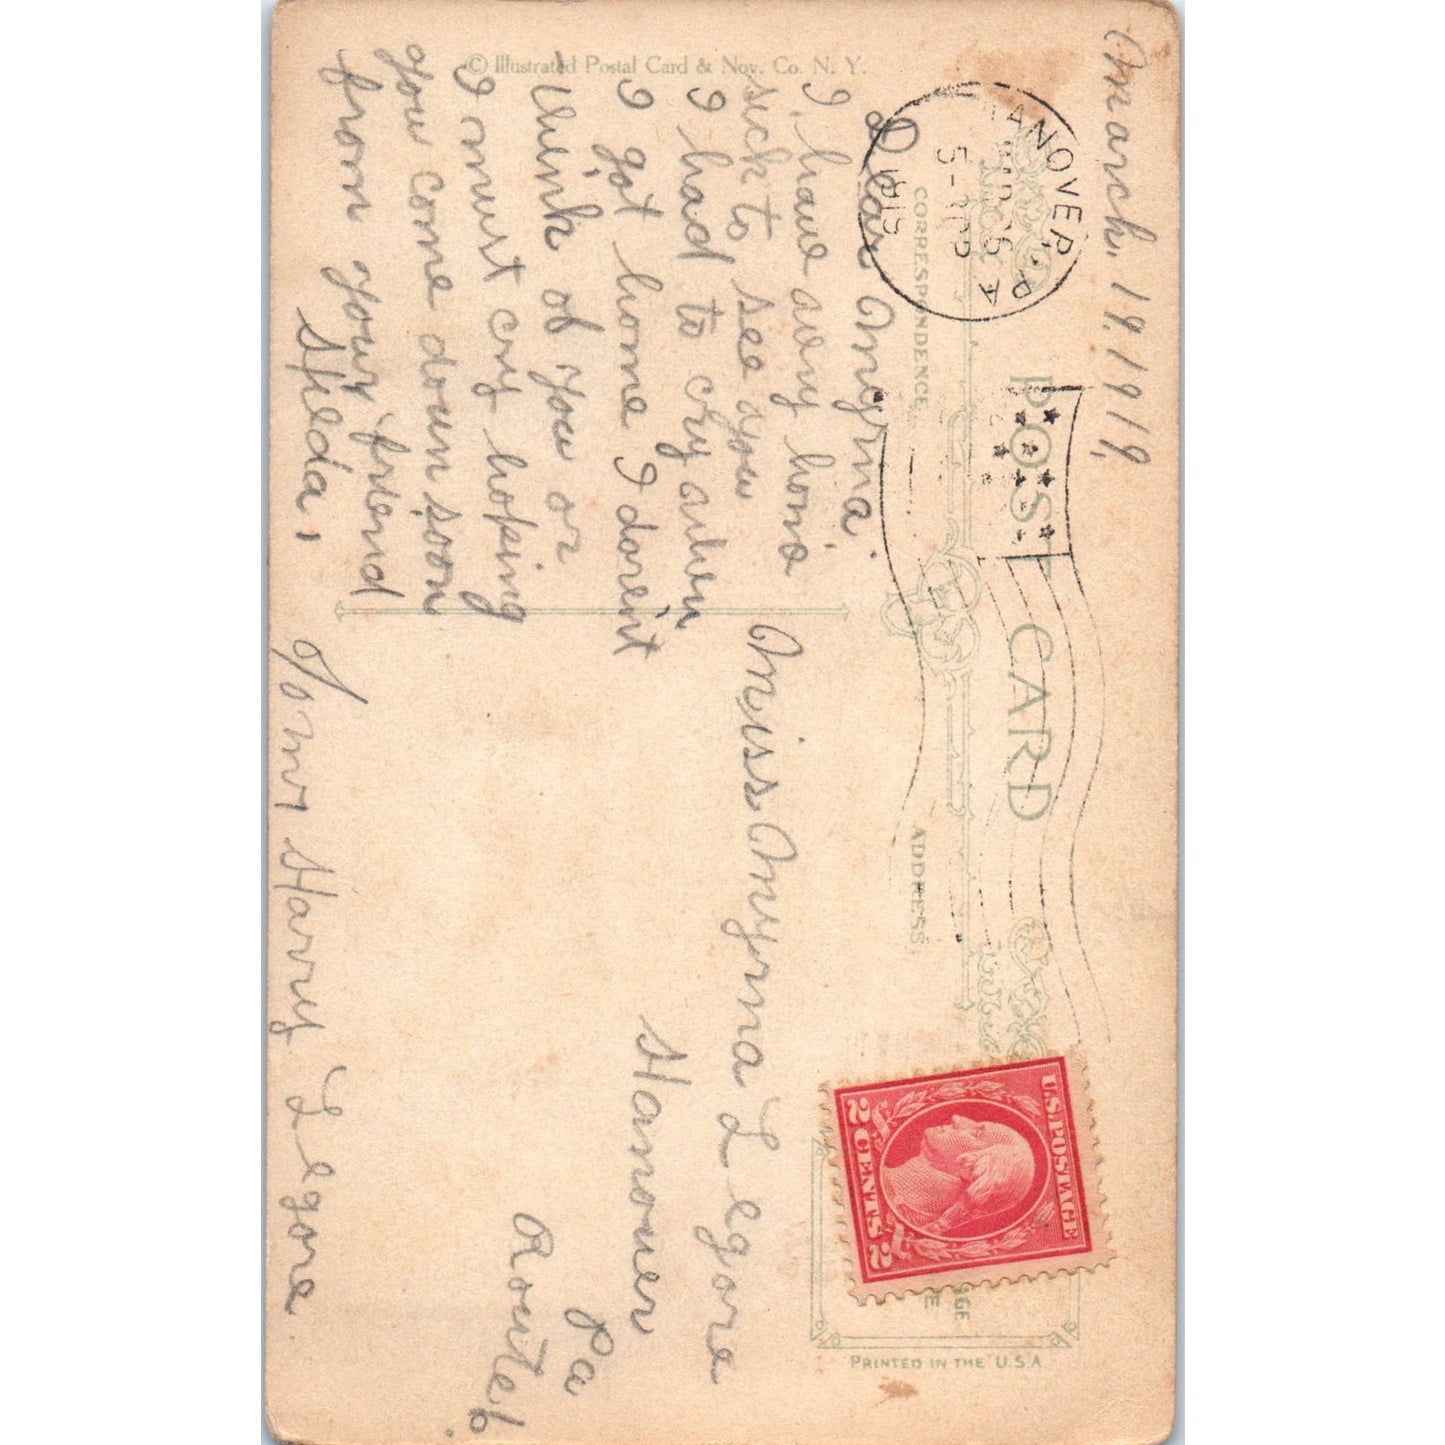 March. 19. 1919,
HANOVER, PA
5-PM
1919
POST CARD
CORRESPONDENCE.
ADDRESS.
U.S. POSTAGE
2 CENTS 2
PRINTED IN THE U.S.A.
© Illustrated Postal Card & Nov. Co. N. Y.
Dear Myrna.
I have avery home
sick to see you
I had to cry when
I got home I darent
think of you or
I must cry hoping
you come down soon
from your friend
Hilda,
Miss Myrna Legore
Hanover
Pa
Route 6
c/o Mr Harry Legore.